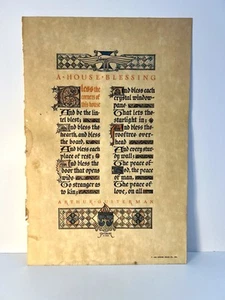 A·HOUSE·BLESSING
Bless the
corners of
this house
And be the lin
tel blest;
And bless the
hearth, and bless
the board,
And bless each
place of rest;
And bless the
door that opens
wide
To stranger as
to kin;
And bless each
crystal window-
pane
That lets the
starlight in;
And bless the
rooftree over-
head
And every stur-
dy wall;
The peace of
God, the peace
of man,
The peace of
love, on all
ARTHUR·GUITERMAN